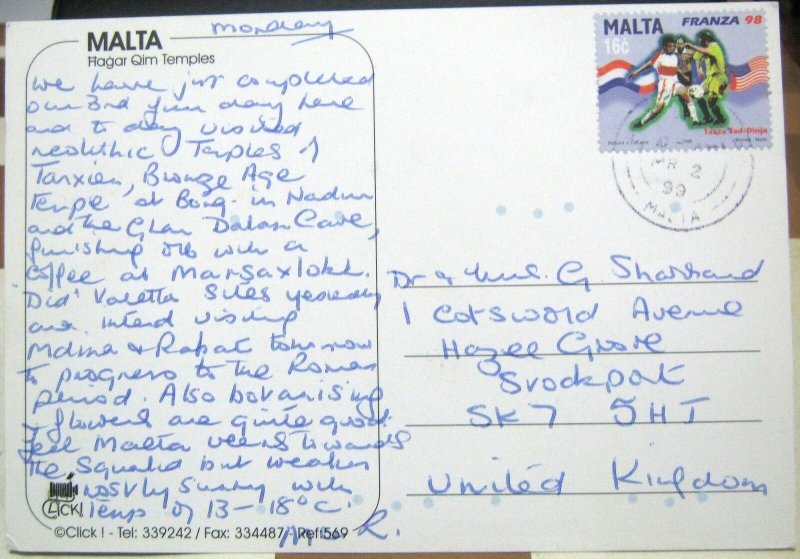 Monday
MALTA
Hagar Qim Temples
We have just completed
our 3rd full day here
and to day visited
neolithic Temples of
Tarxien, Bronze Age
Temple at Borg- in Nadur
and the Ghar Dalam Cave,
finishing off with a
coffee at Marsaxlokk.
Did Valetta sites yesterday
and intend visiting
Mdina & Rabat tomorrow
to progress to the Roman
period. Also botanising
& flowers are quite good.
Feel Malta veers towards
the squalid but weather
mostly sunny with
Temp of 13-18°C.
R.
CLICK!
©Click ! - Tel: 339242 / Fax: 334487 - Ref:569
MALTA
16c
FRANZA 98
Tazza Tad-Dinja
MR 2
99
MALTA
Dr & Mrs. G. Sharrand
1 Cotswold Avenue
Hazel Grove
Stockport
SK7 5HJ
United Kingdom